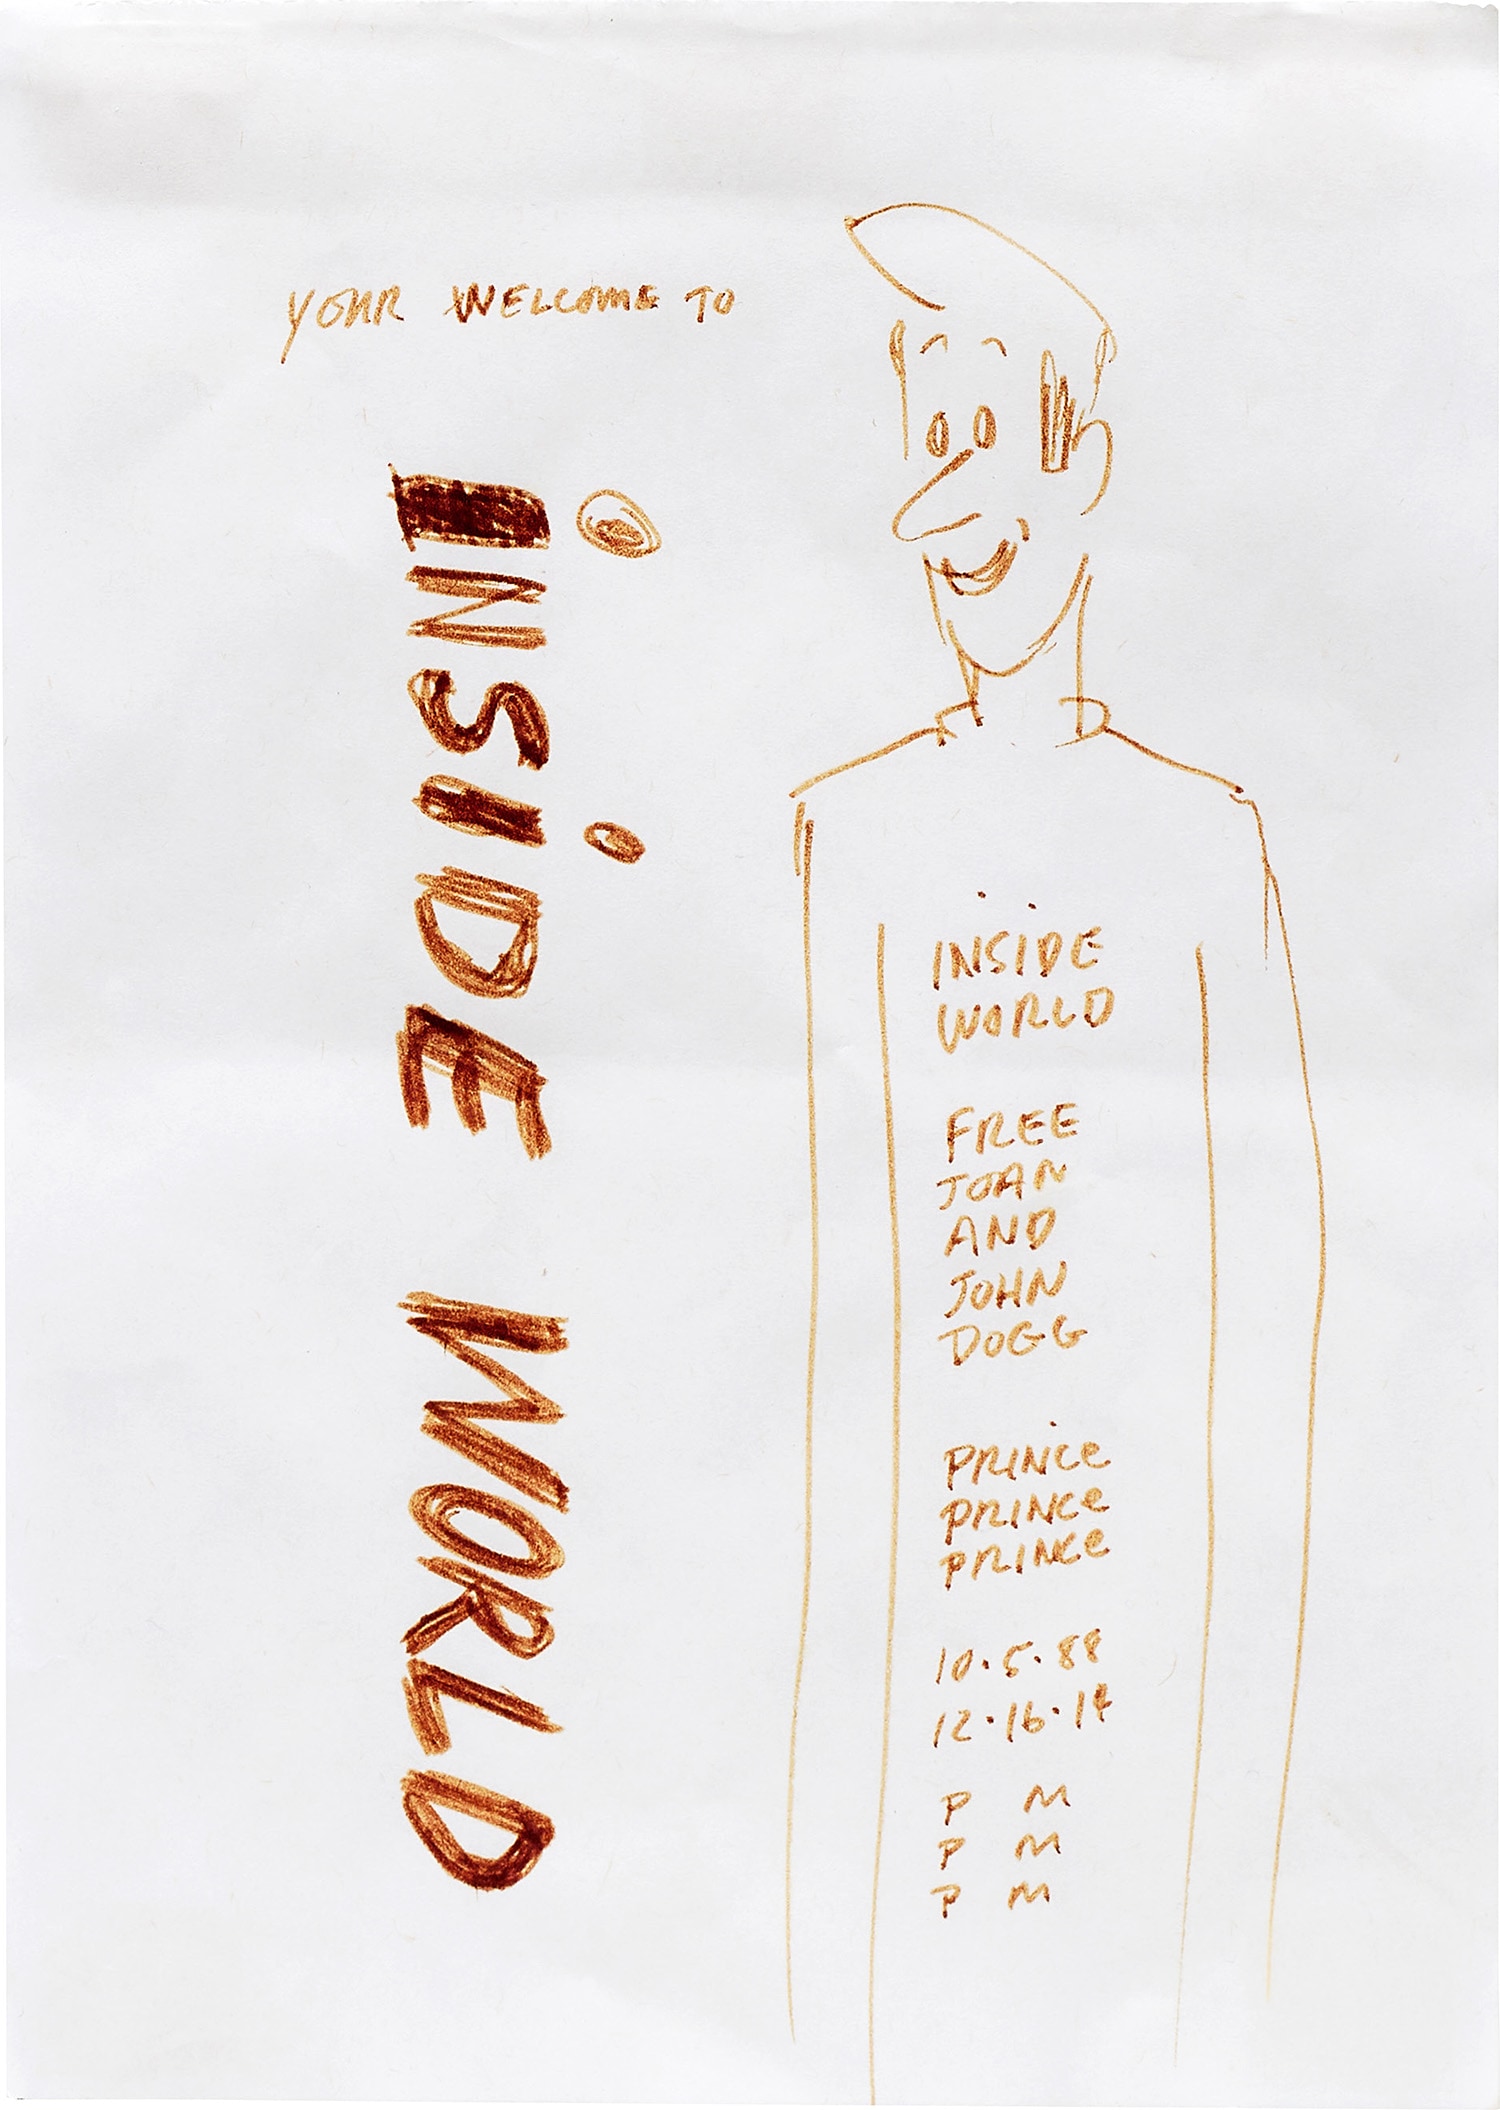 YOUR WELCOME TO
INSiDE WORLD
INSiDE
WORLD
FREE
JOAN
AND
JOHN
DOGG
PRiNce
PRINce
PRINce
10·5·88
12·16·14
P M
P M
P M